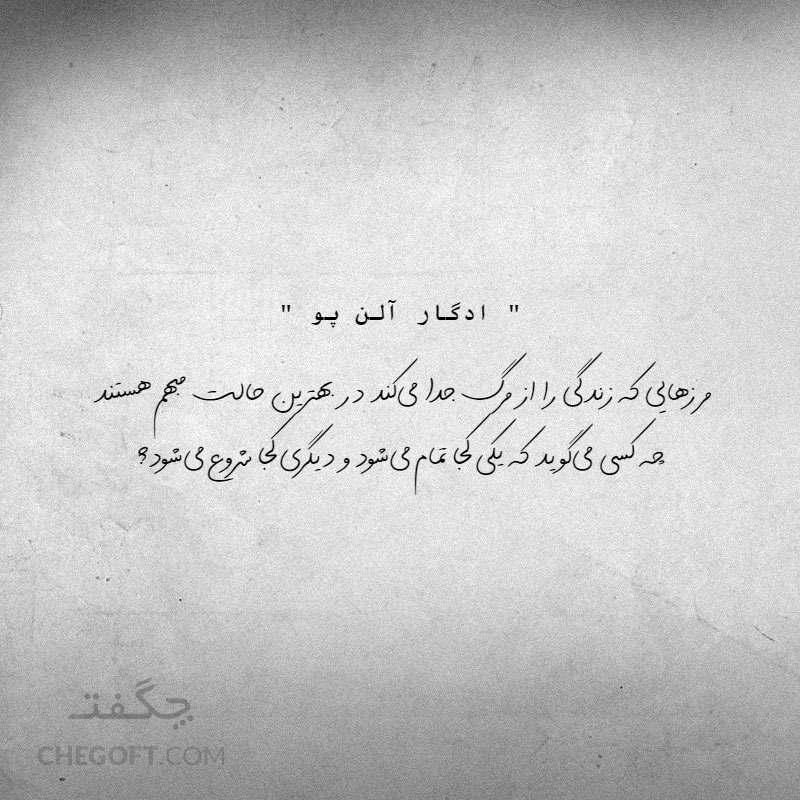 " ادگار آلن پو "
مرزهایی که زندگی را از مرگ جدا می‌کند در بهترین حالت مبهم هستند
چه کسی می‌گوید که یکی کجا تمام می‌شود و دیگری کجا شروع می‌شود؟
چگفت
CHEGOFT.COM